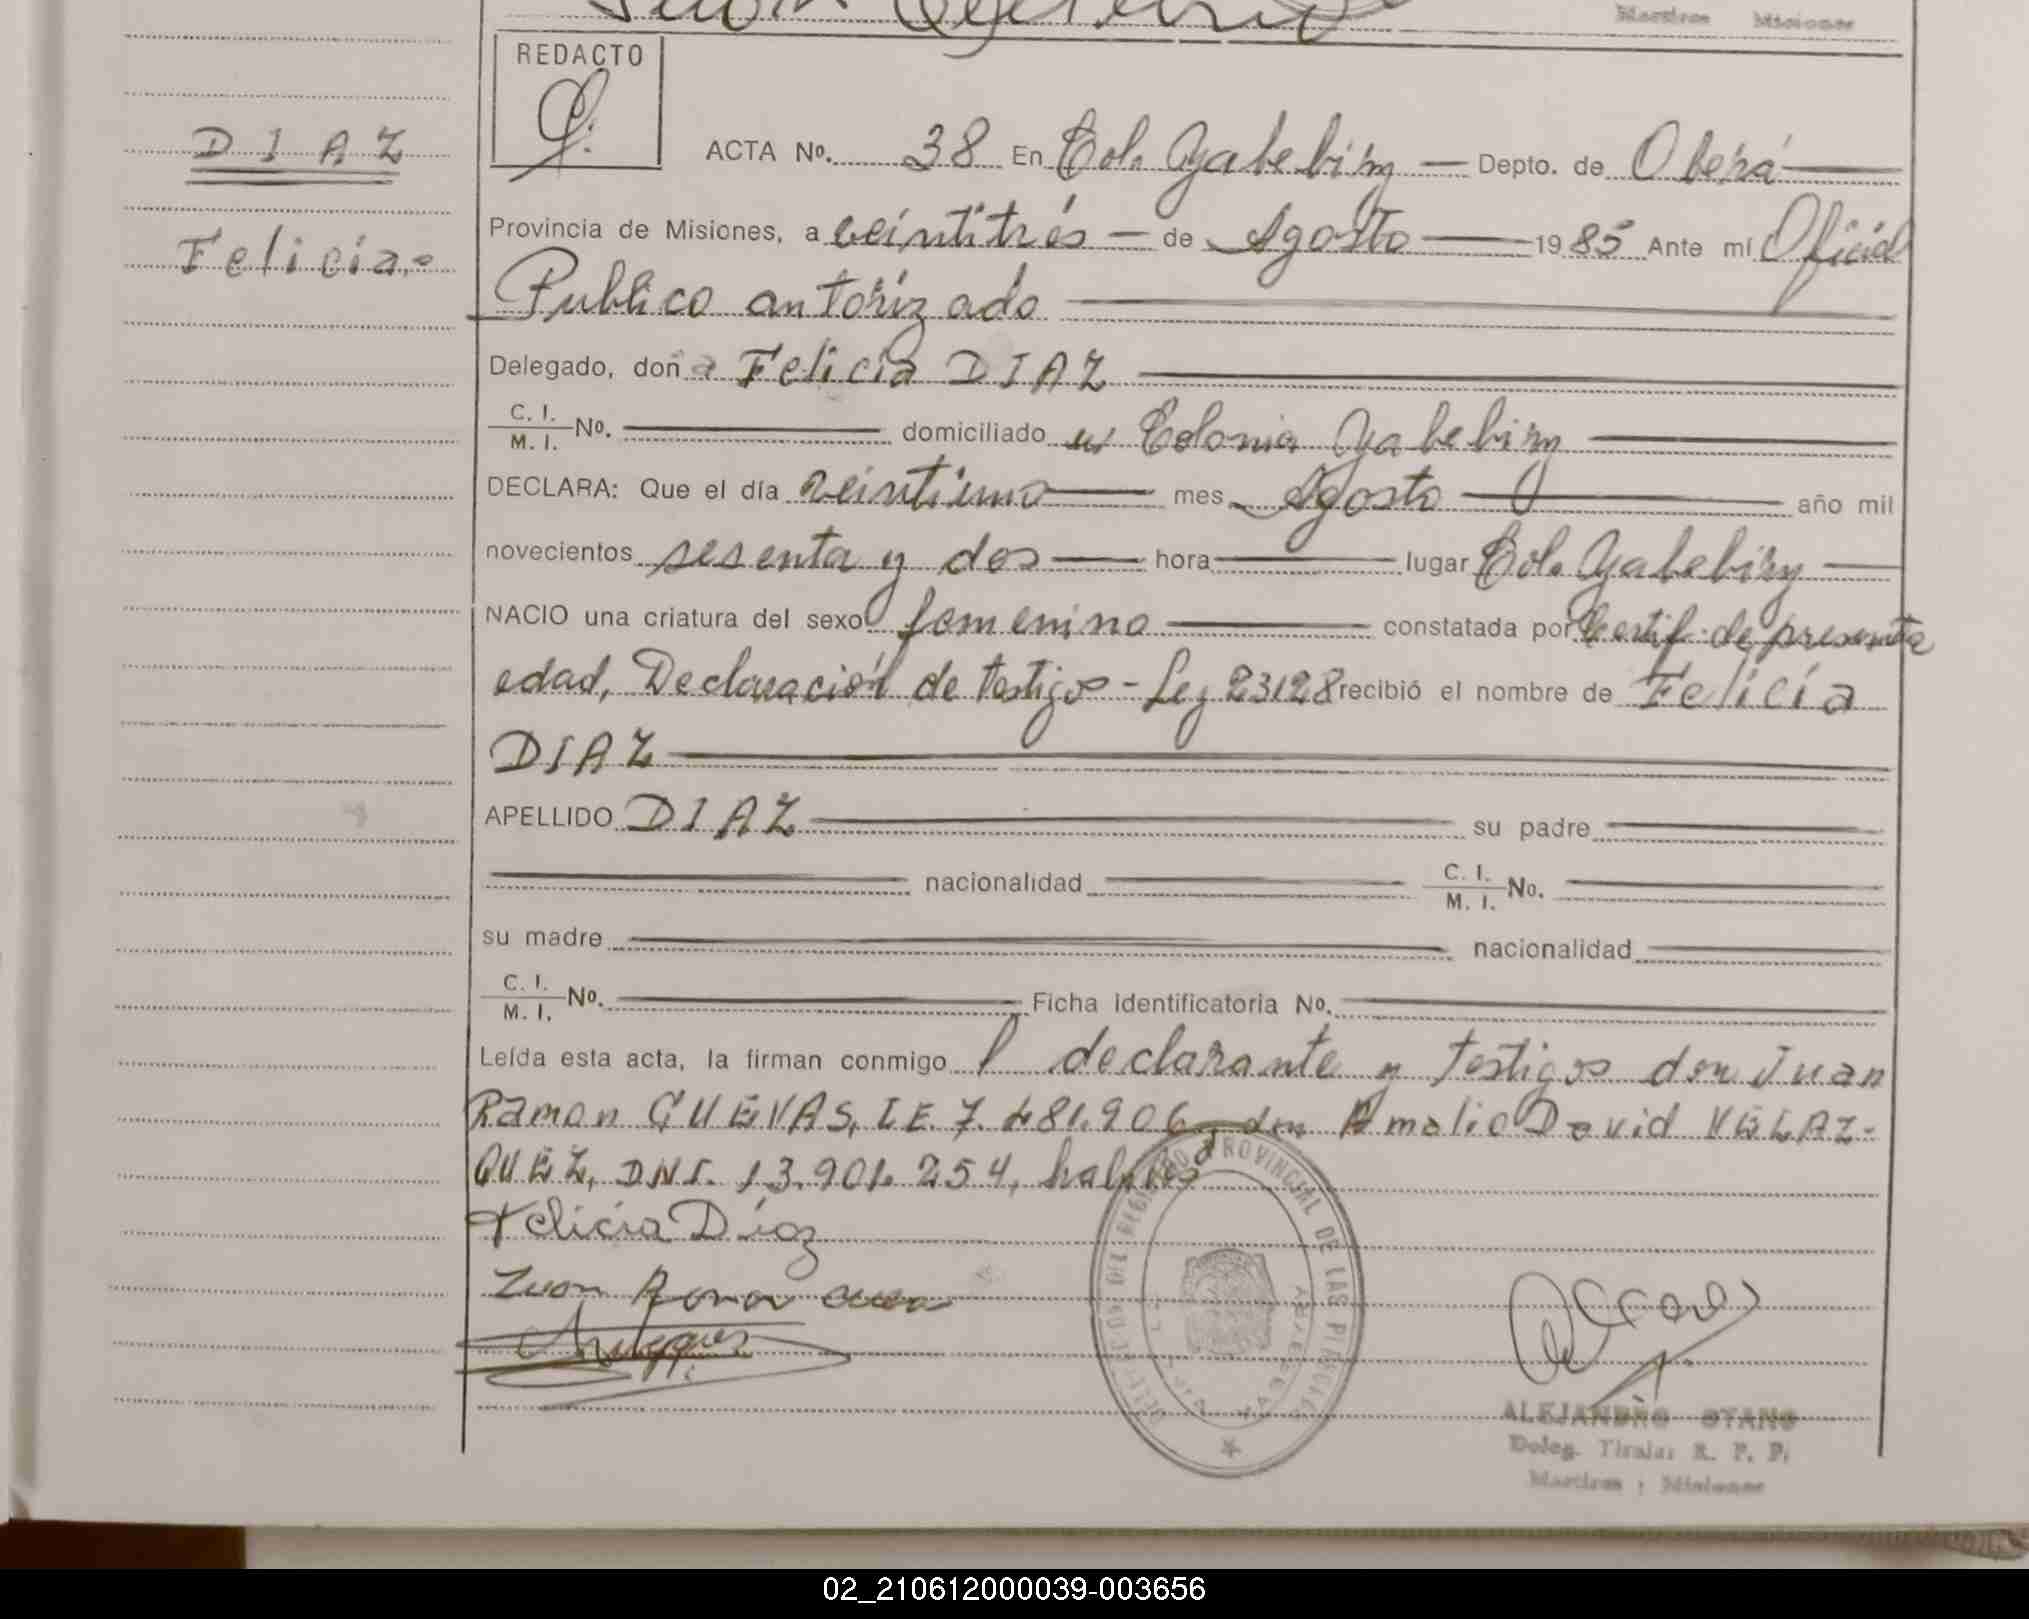 Martires Misiones
REDACTO
D I A Z
Felicia.=
ACTA Nº. 38 En Col. Yabebiry — Depto. de Oberá
Provincia de Misiones, a veintitrés — de Agosto — 1985 Ante mí Oficial
Publico autorizado
Delegado, doña Felicia DIAZ
C. I. / M. I. Nº. domiciliado en Colonia Yabebiry
DECLARA: Que el día veintiuno — mes Agosto — año mil
novecientos sesenta y dos — hora — lugar Col. Yabebiry —
NACIO una criatura del sexo femenino — constatada por Certif. de presunta
edad, Declaración de testigos - Ley 23128 recibió el nombre de Felicia
DIAZ
APELLIDO DIAZ — su padre —
nacionalidad — C. I. / M. I. Nº.
su madre — nacionalidad
C. I. / M. I. Nº. — Ficha identificatoria Nº.
Leída esta acta, la firman conmigo l declarante y testigos don Juan
Ramon CUEVAS, LE. 7.481.906, don Amalio David VELAZ-
QUEZ, DNI. 13.901.254, habiles
Felicia Díaz
Juan Ramon
REGISTRO PROVINCIAL DE LAS PERSONAS
ALEJANDRO OTANO
Deleg. Titular R. P. P.
Martires - Misiones
02_210612000039-003656